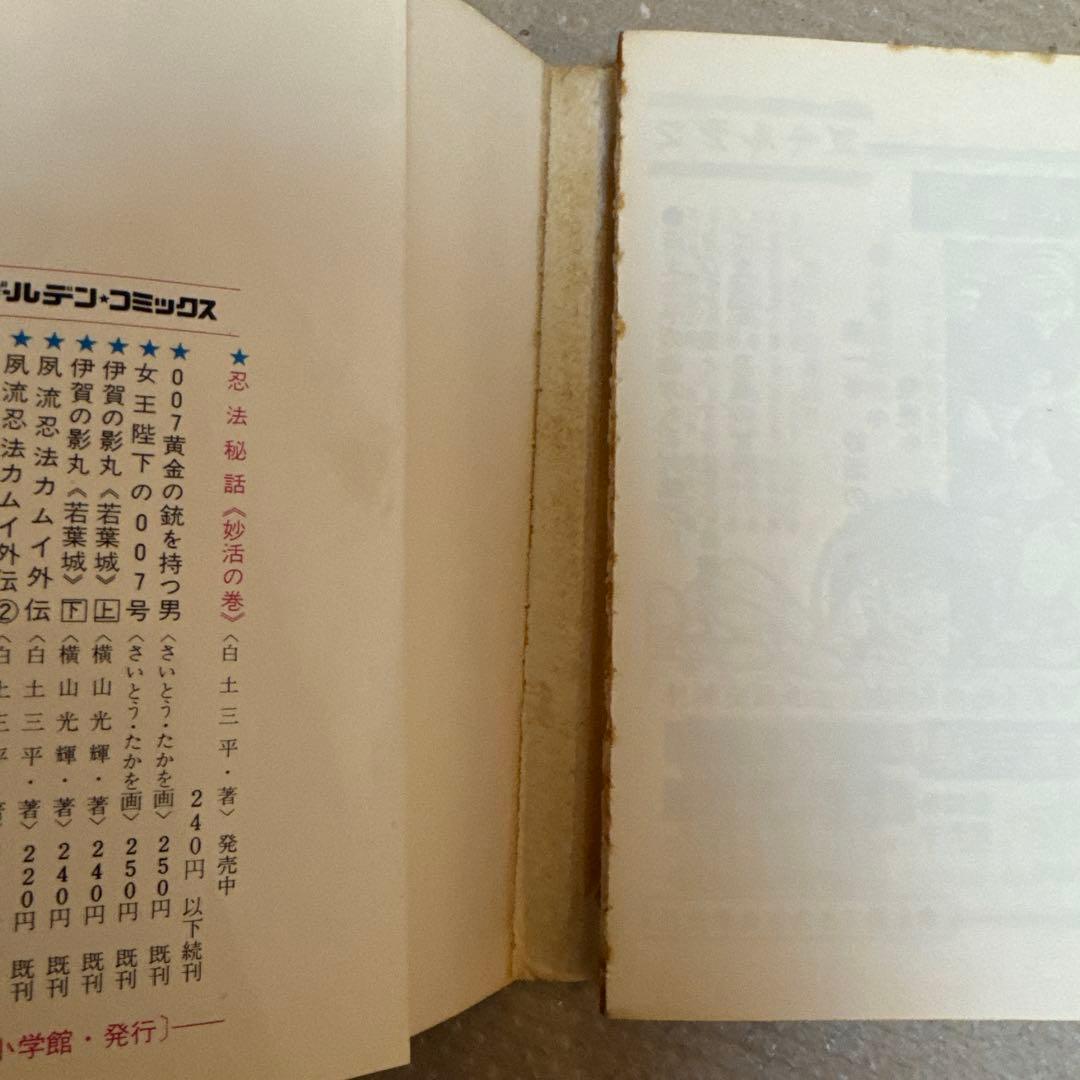 ゴールデン★コミックス
★忍法秘話《妙活の巻》〈白土三平・著〉発売中
240円 以下続刊
★007黄金の銃を持つ男〈さいとう・たかを画〉250円 既刊
★女王陛下の007号〈さいとう・たかを画〉250円 既刊
★伊賀の影丸《若葉城》上〈横山光輝・著〉240円 既刊
★伊賀の影丸《若葉城》下〈横山光輝・著〉240円 既刊
★夙流忍法カムイ外伝〈白土三平・著〉220円 既刊
★夙流忍法カムイ外伝②〈白土三平・著
小学館・発行〕